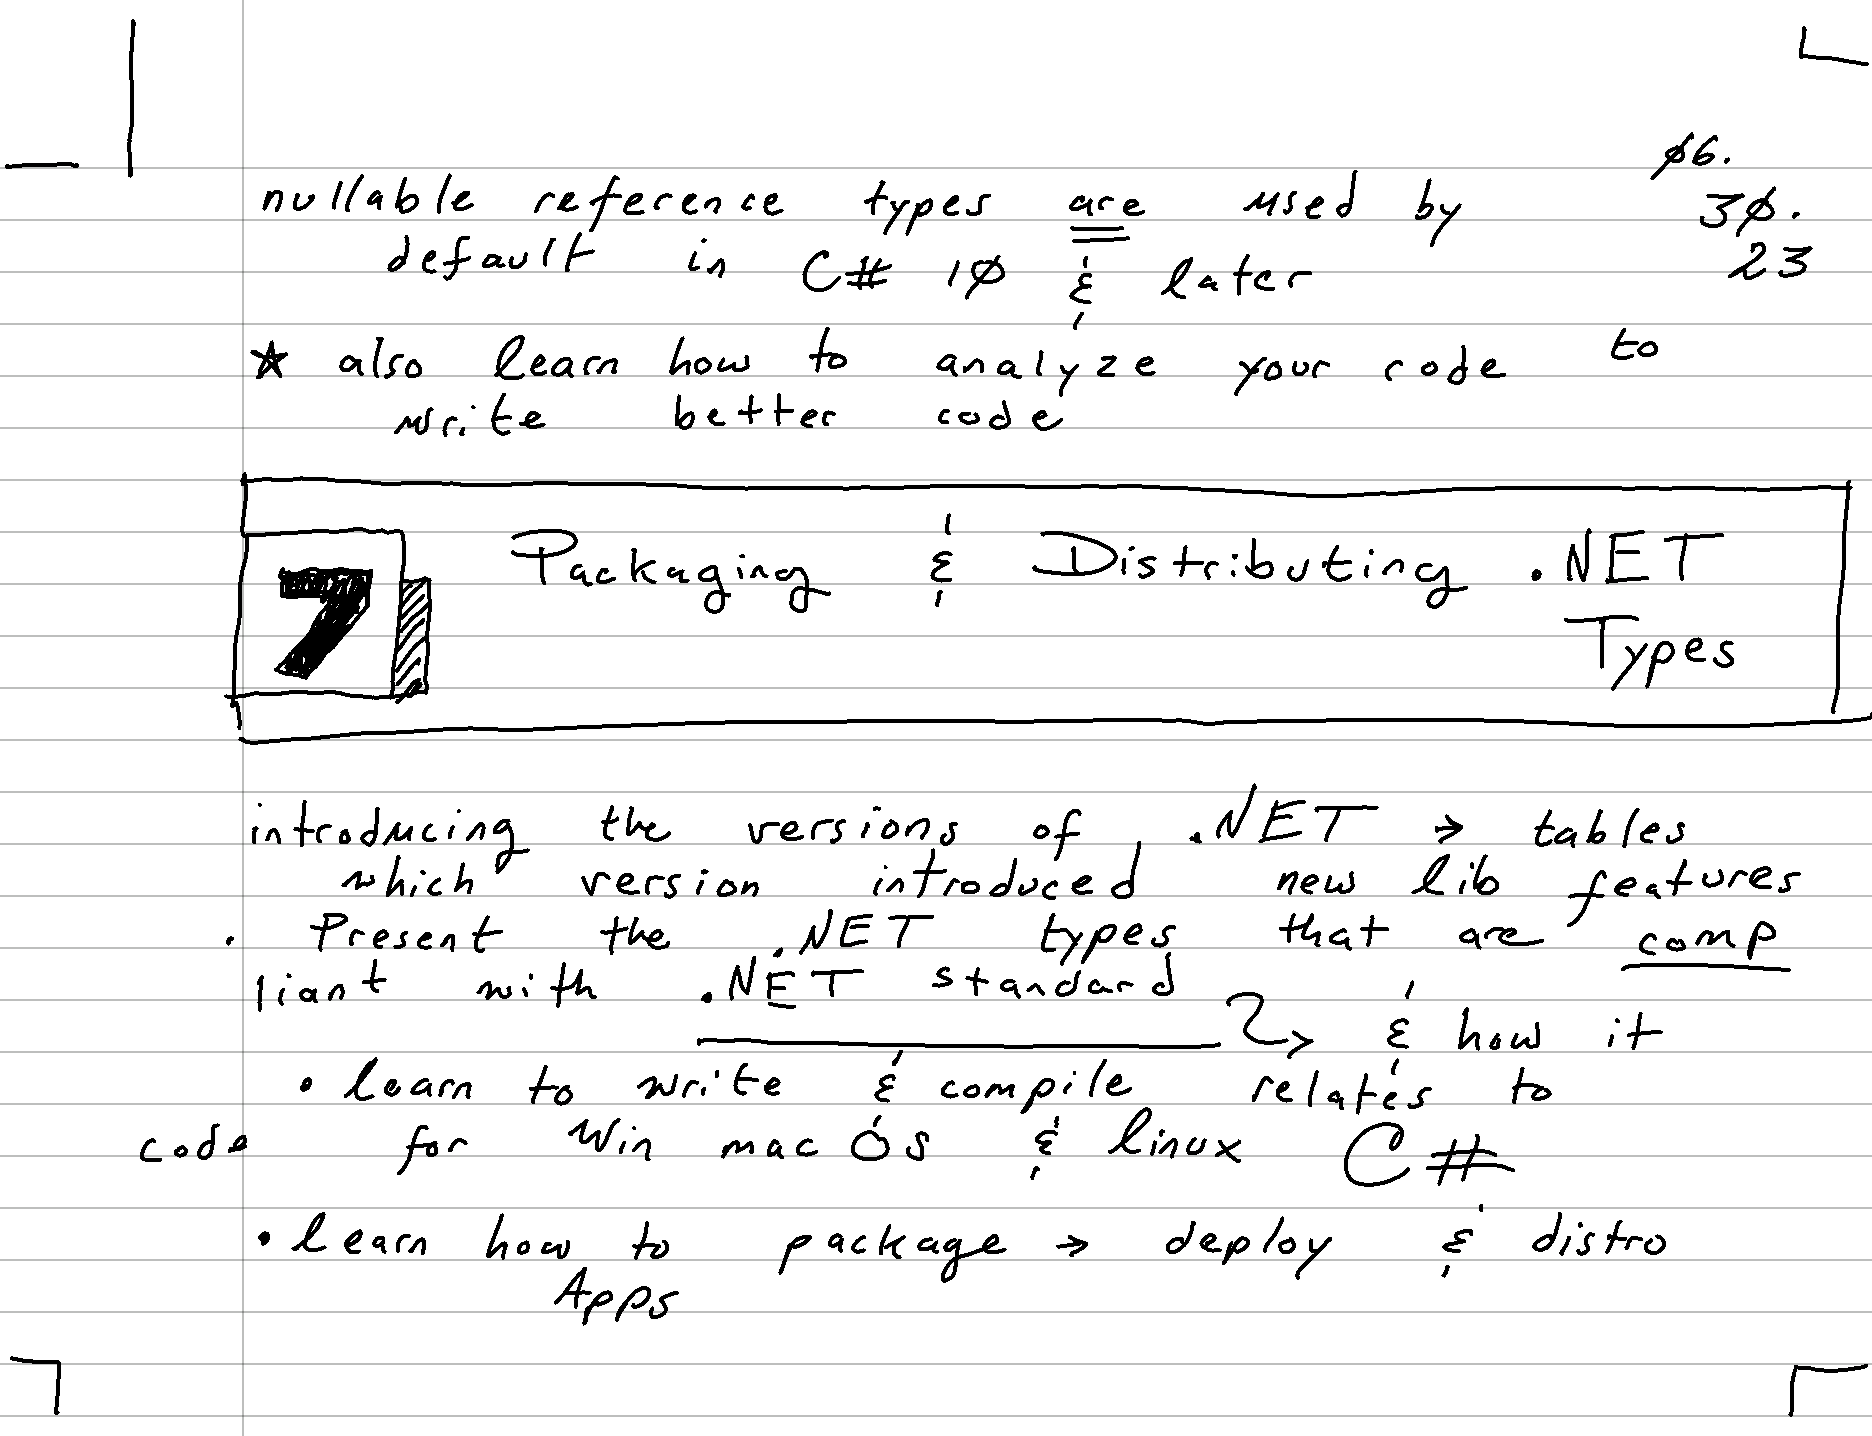 ø6.
nullable reference types are used by 3ø.
default in C# 1ø & later 23
★ also learn how to analyze your code to
write better code
7 Packaging & Distributing .NET
Types
introducing the versions of .NET → tables
which version introduced new lib features
. Present the .NET types that are comp
liant with .NET standard
& how it
• learn to write & compile relates to
code for Win mac OS & linux C#
• learn how to package → deploy & distro
Apps